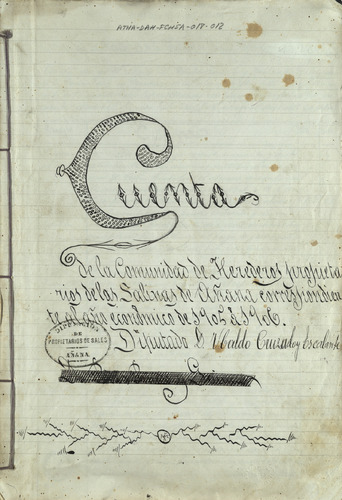 ATHA-DAH-FCHSA-018-012
Cuenta
de la Comunidad de Herederos propieta
rios de las Salinas de Añana correspondien
te al año económico de 1905 á 1906.
Diputado D. Ubaldo
DE
PROPIETARIOS DE SALES
AÑANA